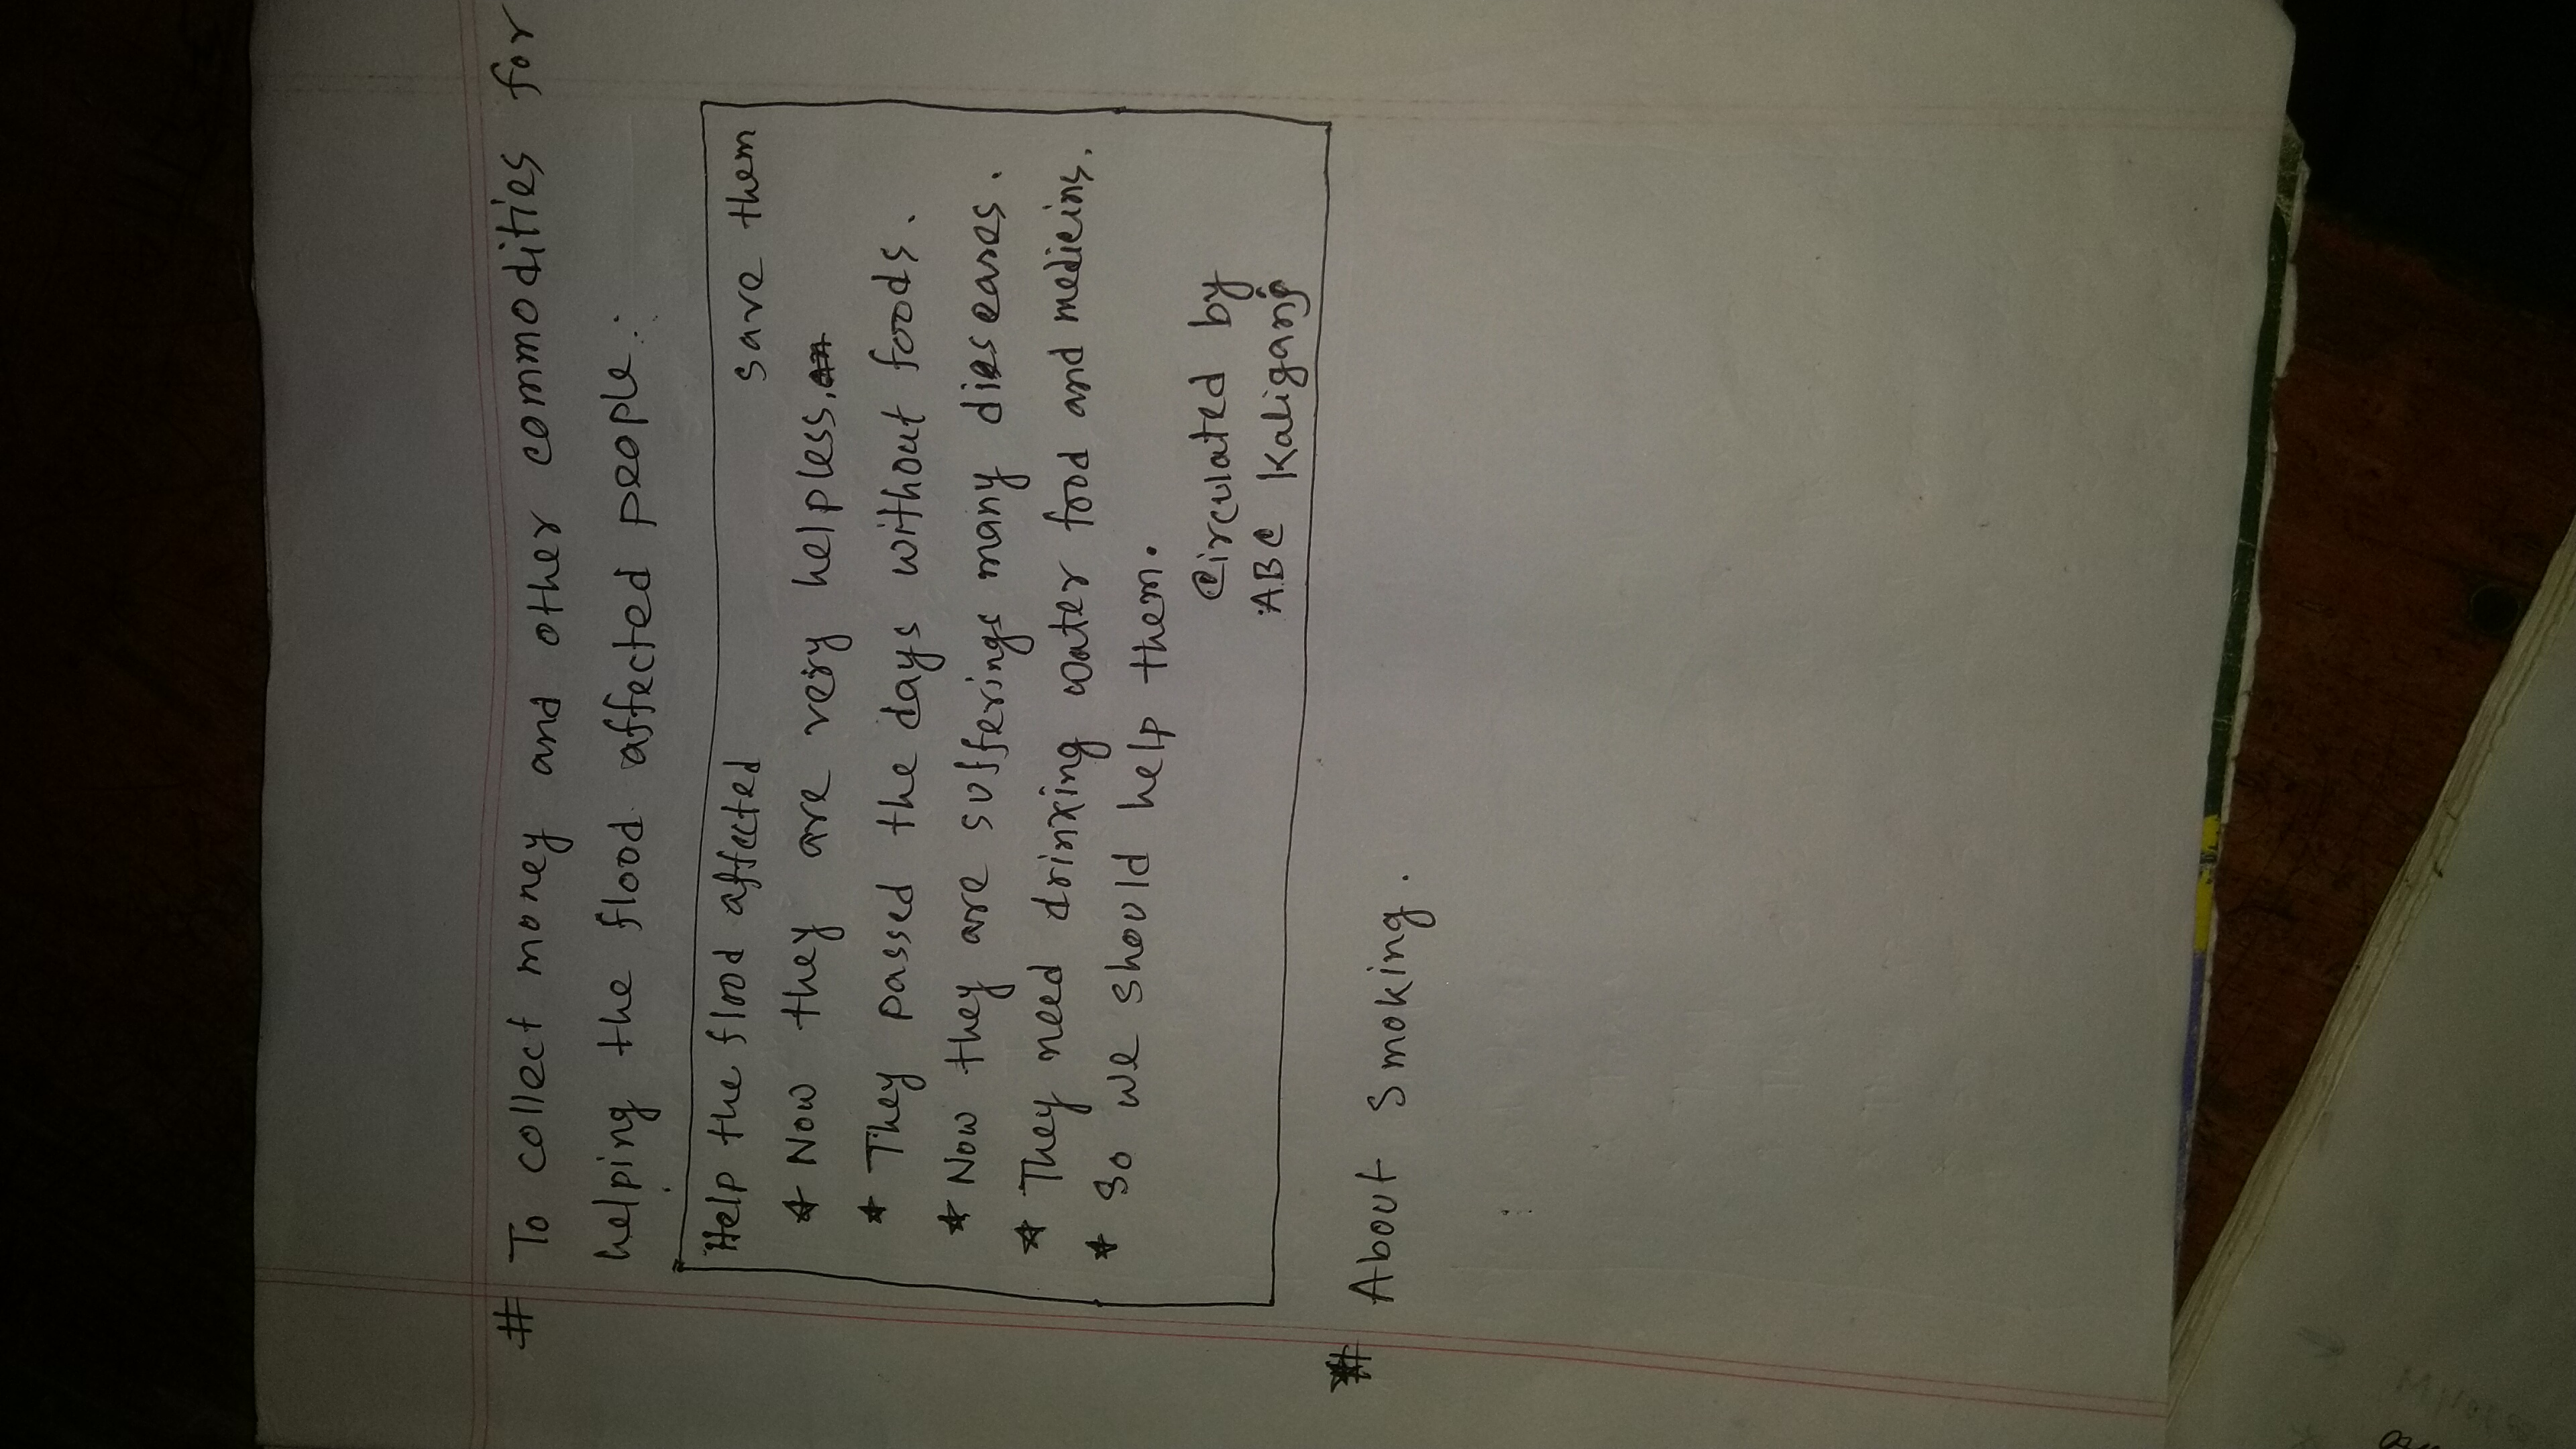 # To collect money and other commodities for
helping the flood affected people:
Help the flood affected save them
* Now they are very helpless.
* They passed the days without foods.
* Now they are sufferings many dieseases.
* They need drinking water food and medicins.
* So we should help them.
Circulated by
ABC Kaliganj
# About smoking.